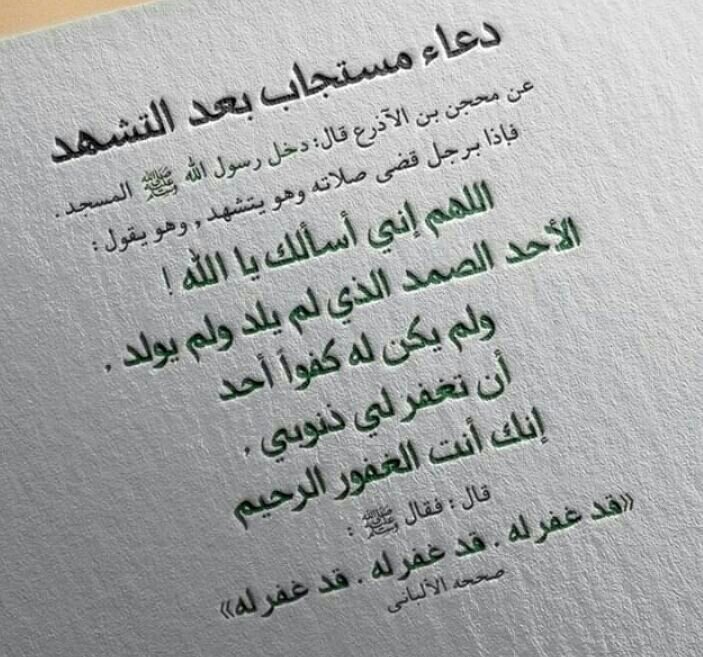 دعاء مستجاب بعد التشهد
عن محجن بن الآذرع قال: دخل رسول الله ﷺ المسجد .
فإذا برجل قضى صلاته وهو يتشهد , وهو يقول :
اللهم إني أسألك يا الله !
الأحد الصمد الذي لم يلد ولم يولد .
ولم يكن له كفواً أحد
أن تغفر لي ذنوبي ,
إنك أنت الغفور الرحيم
قال : فقال ﷺ :
«قد غفر له . قد غفر له . قد غفر له»
صححه الألباني